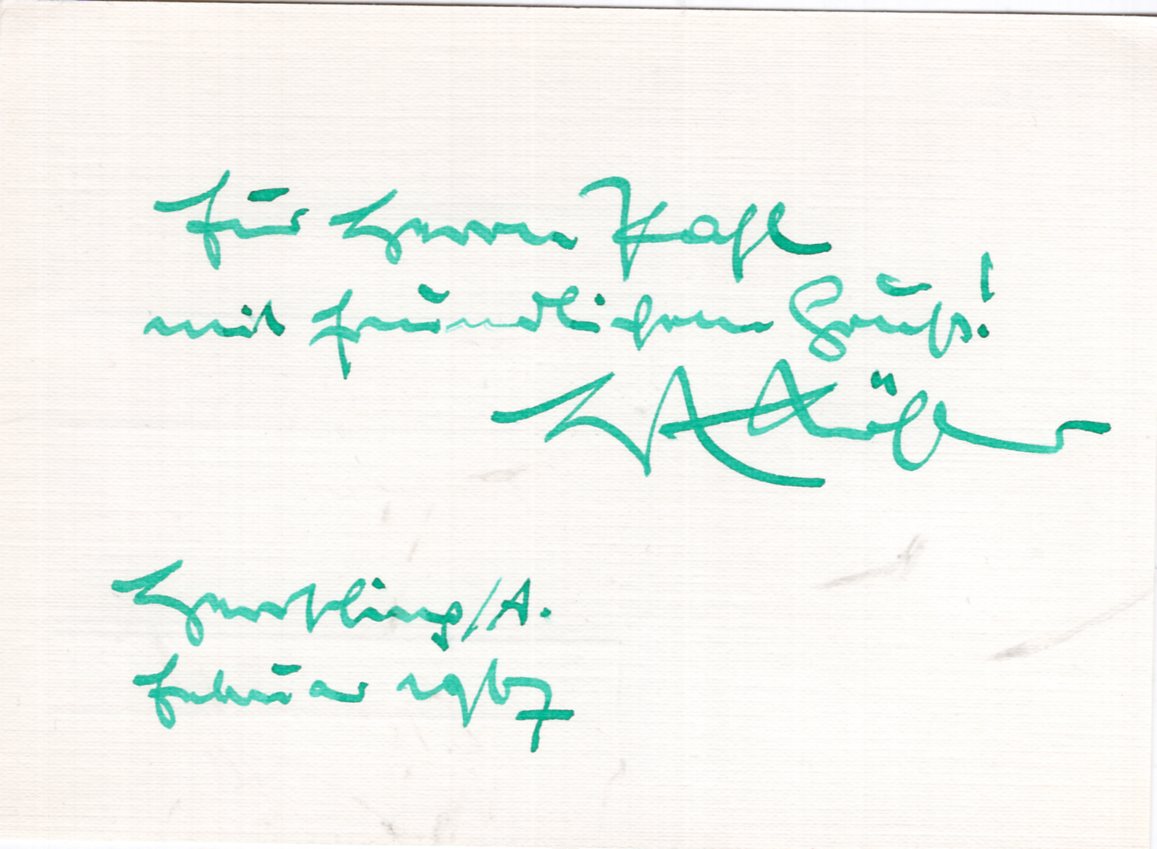 Für Herrn
mit freundlichem Gruß!
Köhler
Herrsching/A.
Februar 1967